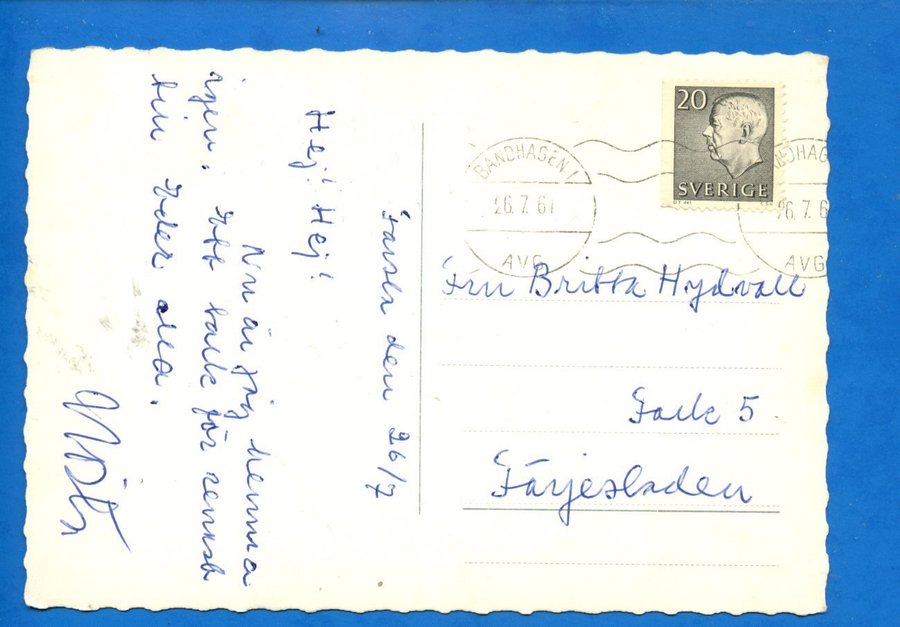 20
SVERIGE
BANDHAGEN 1
26.7.61
AVG
NDHAG
26.7.6
AVG
Farsta den 26/7
Hej! Hej!
Nu är jag hemma
igen. Ett tack för senast
till Eder alla.
Fru Britta Hydvall
Fack 5
Färjestaden